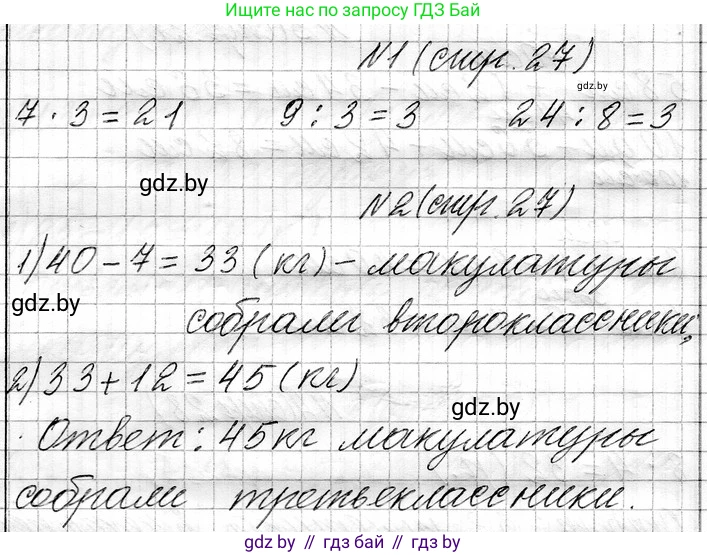 Ищите нас по запросу ГДЗ Бай
N1 (стр. 27)
gdz.by
7 · 3 = 21 9 : 3 = 3 24 : 8 = 3
gdz.by
N2 (стр. 27)
1) 40 - 7 = 33 (кг) - макулатуры
gdz.by
собрали второклассники;
2) 33 + 12 = 45 (кг)
gdz.by
Ответ: 45 кг макулатуры
собрали третьеклассники.
gdz.by // гдз бай // гдз.by